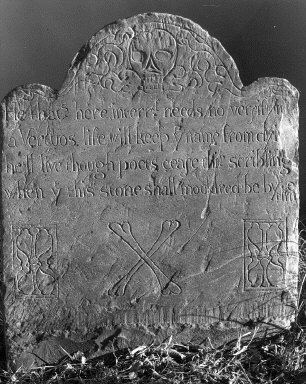 He thats here interrt needs no versifyin
a vertuos life will keep y name from dyin
he'll live though poets cease thir scribling
when y this stone shall moldred be by